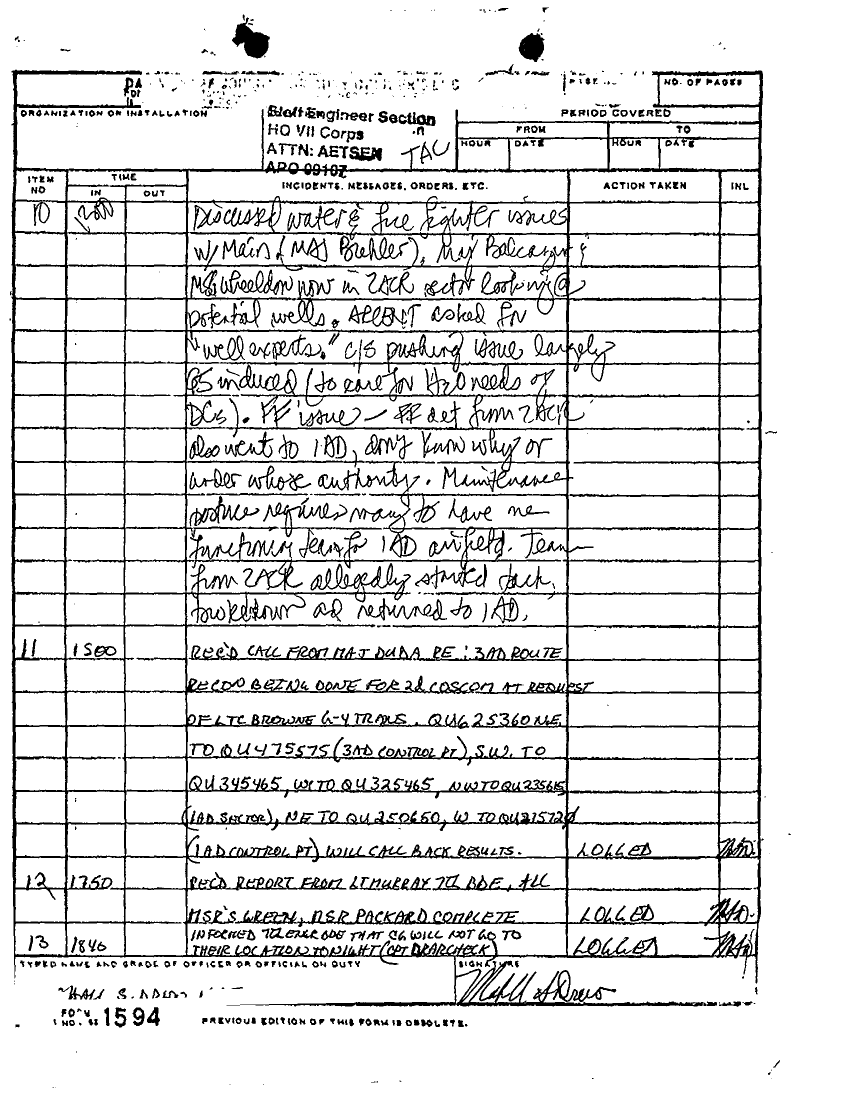 DA
NO. OF PAGES
ORGANIZATION OR INSTALLATION
Staff Engineer Section
HQ VII Corps
ATTN: AETSEN
TAC
APO
PERIOD COVERED
FROM
TO
HOUR DATE HOUR DATE
ITEM NO
TIME
IN OUT
INCIDENTS, MESSAGES, ORDERS, ETC.
ACTION TAKEN
INL
10 1200 Discussed water & fire fighter issues
w/ Main (MAJ Brehler), Maj Balcazar &
MSG Wheeldon now in 2ACR sector looking @
potential wells. ARCENT asked for
"well experts." C/S pushing issue largely
G5 induced (to care for H2O needs of
DCs). FF issue - FF det from 2ACR
also went to 1AD, don't know why or
under whose authority. Maintenance
posture requires many to have one
functioning team for 1AD airfield. Team
from 2ACR allegedly started back,
brokedown ad returned to 1AD.
11 1500 REC'D CALL FROM MAJ DUDA RE: 3AD ROUTE
RECON BEING DONE FOR 2d COSCOM AT REQUEST
OF LTC BROWNE G-4 TRANS. QU625360 NE
TO QU475575 (3AD CONTROL PT), S.W. TO
QU345465, W TO QU325465, NW TO QU235615
(1AD SECTOR), NE TO QU250650, W TO QU215720
(1AD CONTROL PT) WILL CALL BACK RESULTS. LOGGED
12 1750 REC'D REPORT FROM LT MURRAY 7TH BDE, ALL
MSR'S GREEN, MSR PACKARD COMPLETE LOGGED
13 1840 INFORMED 7TH ENGR BDE THAT CG WILL NOT GO TO
THEIR LOCATION TONIGHT (CPT DRARCHECK) LOGGED
TYPED NAME AND GRADE OF OFFICER OR OFFICIAL ON DUTY
SIGNATURE
FORM 1594 PREVIOUS EDITION OF THIS FORM IS OBSOLETE.